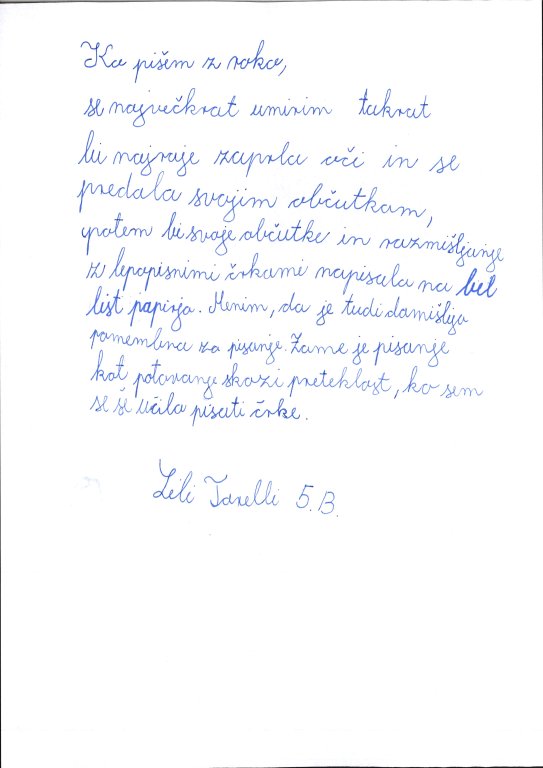 Ko pišem z roko,
se največkrat umirim takrat
bi najraje zaprla oči in se
predala svojim občutkom,
potem bi svoje občutke in razmišljanje
z lepopisnimi črkami napisala na bel
list papirja. Menim, da je tudi domišlija
pomembna za pisanje. Zame je pisanje
kot potovanje skozi preteklost, ko sem
se še učila pisati črke.
Lili Tarelli 5.B.